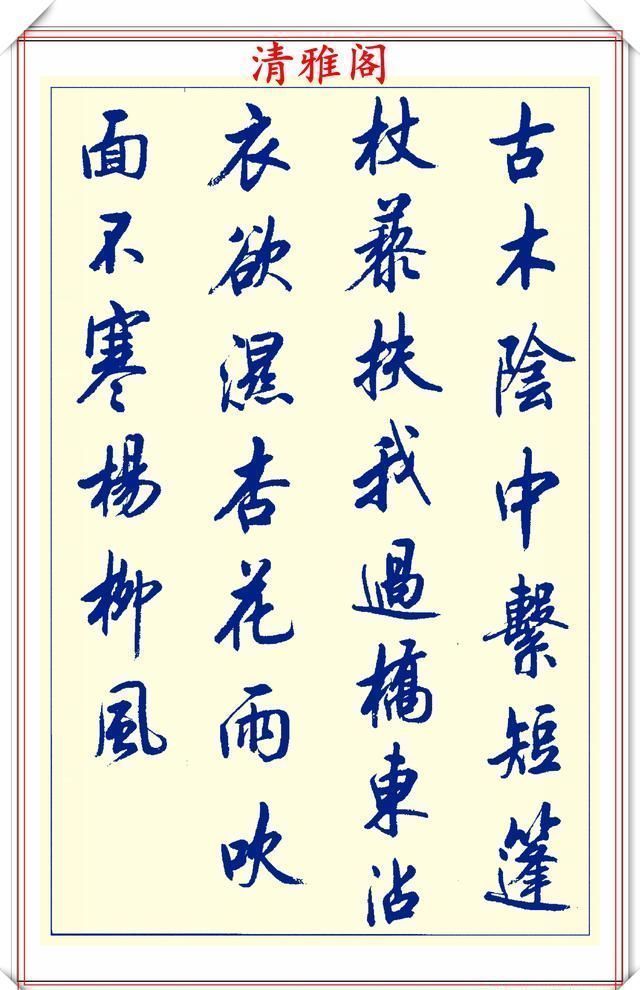 清雅阁
古木陰中繫短篷
杖藜扶我過橋東沾
衣欲濕杏花雨吹
面不寒楊柳風